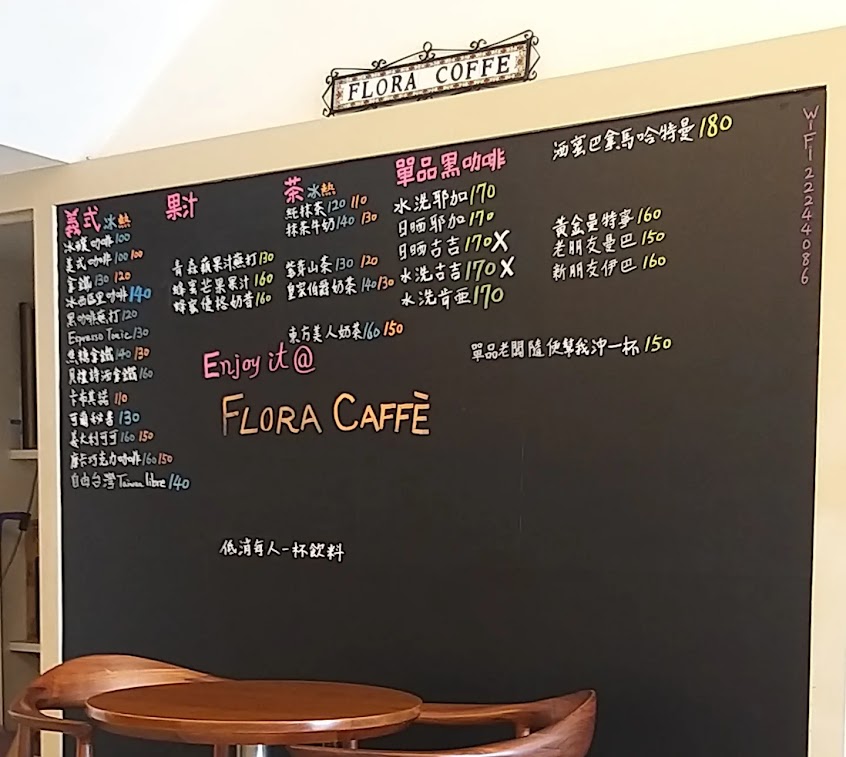 FLORA COFFE
義式 冰 熱
冰釀咖啡 100
美式咖啡 100 100
拿鐵 130 120
冰西西里咖啡 140
黑咖啡蘇打 120
Espresso Tonic 130
焦糖拿鐵 140 130
貝禮詩酒拿鐵 160
卡布其諾 110
可爾秘書 130
義大利可可 160 150
摩卡巧克力咖啡 160 150
自由台灣 Taiwan libre 140
果汁
青森蘋果汁蘇打 130
蜂蜜芒果果汁 160
蜂蜜優格奶昔 160
茶 冰 熱
純抹茶 120 110
抹茶牛奶 140 130
紫芽山茶 130 120
皇家伯爵奶茶 140 130
東方美人奶茶 160 150
單品黑咖啡
水洗耶加 170
日晒耶加 170
日晒古吉 170 X
水洗古吉 170 X
水洗肯亞 170
酒蜜巴拿馬哈特曼 180
黃金曼特寧 160
老朋友曼巴 150
新朋友伊巴 160
單品老闆隨便幫我沖一杯 150
WIFI 22244086
Enjoy it @
FLORA CAFFÈ
低消每人一杯飲料